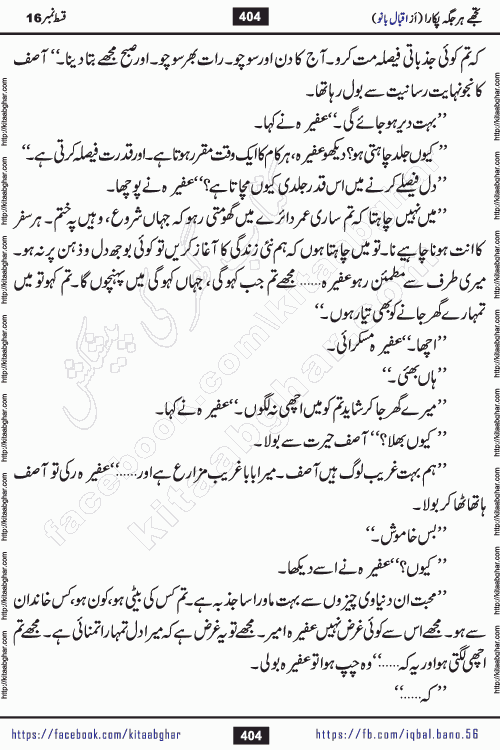 تجھے ہر جگہ پکارا (از اقبال بانو)
404
قسط نمبر 16
کہ تم کوئی جذباتی فیصلہ مت کرو۔ آج کا دن اور سوچو۔ رات بھر سوچو۔ اور صبح مجھے بتا دینا۔“ آصف
کانجو نہایت رسانیت سے بول رہا تھا۔
”بہت دیر ہو جائے گی۔“ عفیرہ نے کہا۔
”کیوں جلد چاہتی ہو؟ دیکھو عفیرہ، ہر کام کا ایک وقت مقرر ہوتا ہے۔ اور قدرت فیصلہ کرتی ہے۔“
”دل فیصلے کرنے میں اس قدر جلدی کیوں مچاتا ہے؟“ عفیرہ نے پوچھا۔
”میں نہیں چاہتا کہ تم ساری عمر دائرے میں گھومتی رہو کہ جہاں شروع، وہیں پہ ختم۔ ہر سفر
کا انت ہونا چاہیے نا۔ تو میں چاہتا ہوں کہ ہم نئی زندگی کا آغاز کریں تو کوئی بوجھ دل و ذہن پر نہ ہو۔
میری طرف سے مطمئن رہو عفیرہ...... مجھے تم جب کہو گی، جہاں کہو گی میں پہنچوں گا۔ تم کہو تو میں
تمہارے گھر جانے کو بھی تیار ہوں۔“
”اچھا۔“ عفیرہ مسکرائی۔
”ہاں بھئی۔“
”میرے گھر جا کر شاید تم کو میں اچھی نہ لگوں۔“ عفیرہ نے کہا۔
”کیوں بھلا؟“ آصف حیرت سے بولا۔
”ہم بہت غریب لوگ ہیں آصف۔ میرا بابا غریب مزارع ہے اور......“ عفیرہ رکی تو آصف
ہاتھ اٹھا کر بولا۔
”بس خاموش۔“
”کیوں؟“ عفیرہ نے اسے دیکھا۔
”محبت ان دنیاوی چیزوں سے بہت ماورا سا جذبہ ہے۔ تم کس کی بیٹی ہو، کون ہو، کس خاندان
سے ہو۔ مجھے اس سے کوئی غرض نہیں عفیرہ امیر۔ مجھے تو یہ غرض ہے کہ میرا دل تمہارا تمنائی ہے۔ مجھے تم
اچھی لگتی ہو اور یہ کہ......“ وہ چپ ہوا تو عفیرہ بولی۔
”کہ......“
https://facebook.com/kitaabghar
404
https://fb.com/iqbal.bano.56
http://kitaabghar.com
facebook.com/kitaabghar
کتاب گھر کی پیشکش